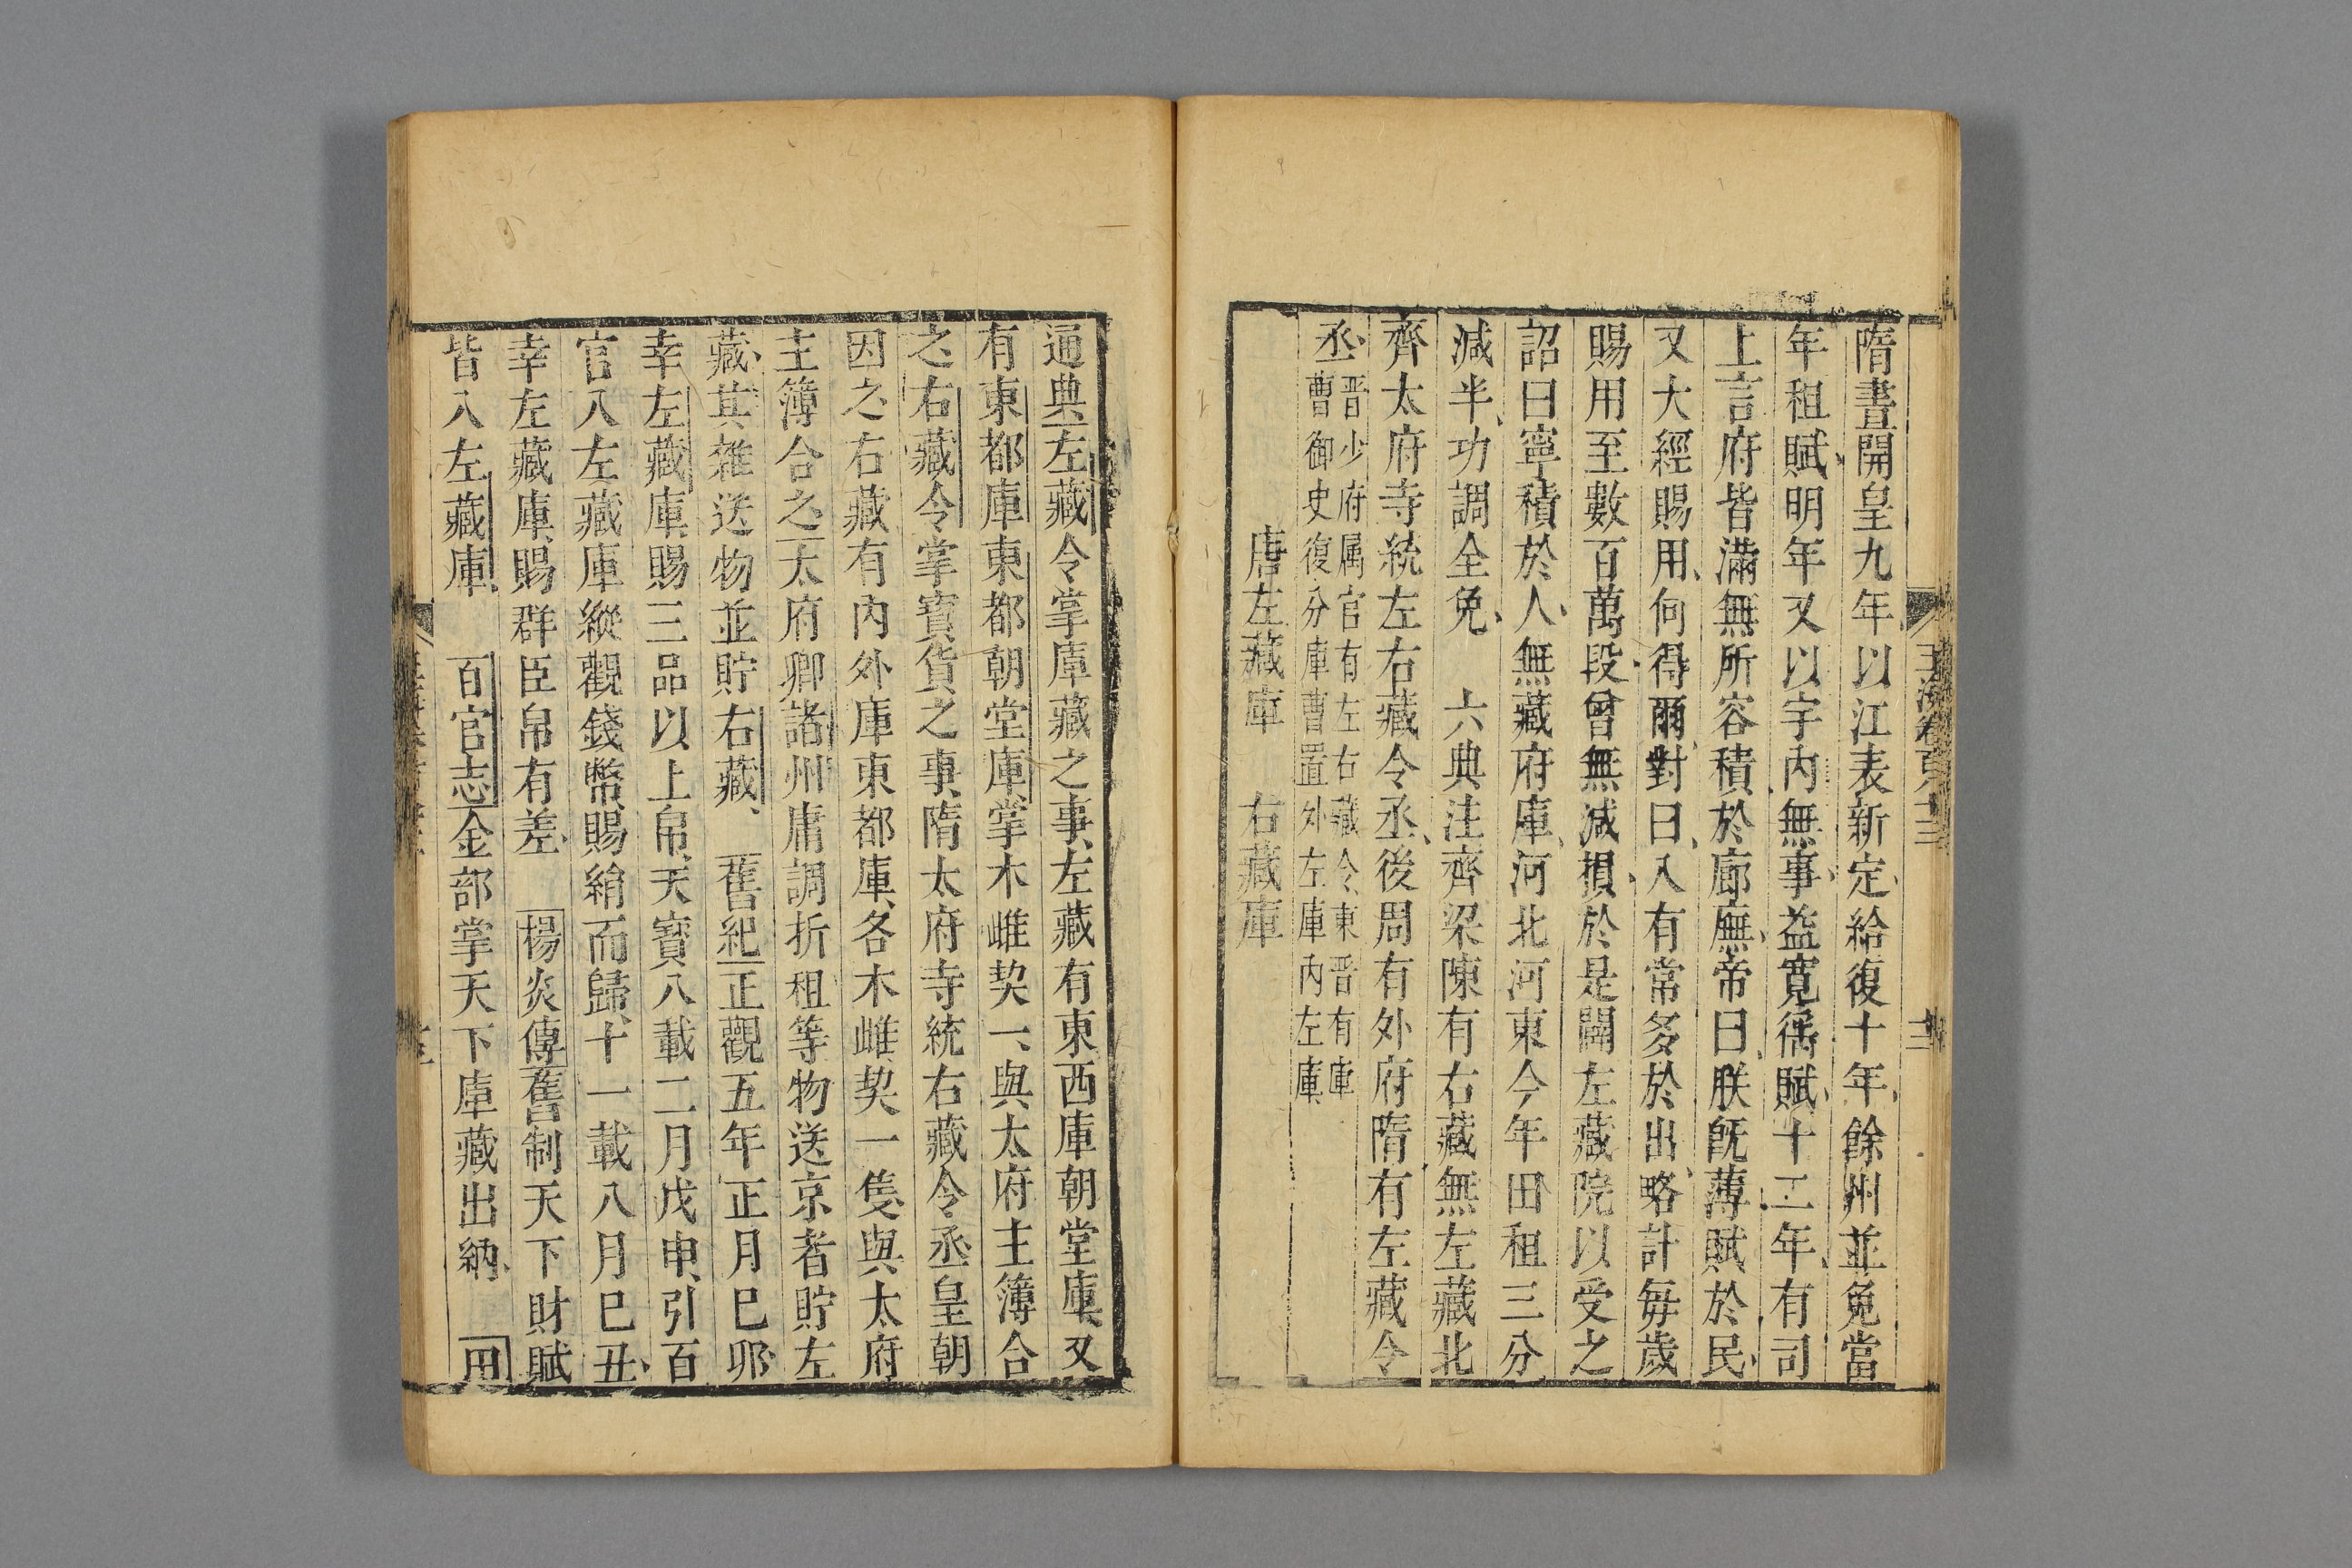 隋書開皇九年以江表新定給復十年餘州並免當
年租賦明年又以宇内無事益寬徭賦十二年有司
上言府皆滿無所容積於廊廡帝曰朕旣薄賦於民
又大經賜用何得爾對曰入有常多於出略計毎歲
賜用至數百萬段曾無减損於是闢左藏院以受之
詔曰寧積於人無藏府庫河北河東今年田租三分
减半功調全免　六典注齊梁陳有右藏無左藏北
齊太府寺統左右藏令丞後周有外府隋有左藏令
丞
晋少府属官有左右藏令東晋有庫
曹御史復分庫曹置外左庫内左庫
唐左藏庫　右藏庫
通典左藏令掌庫藏之事左藏有東西庫朝堂庫又
有東都庫東都朝堂庫掌木雌契一與太府主簿合
之右藏令掌寳貨之事隋太府寺統右藏令丞皇朝
因之右藏有内外庫東都庫各木雌契一隻與太府
主簿合之太府卿諸州庸調折租等物送京者貯左
藏其雜送物並貯右藏　舊紀正觀五年正月巳夘
幸左藏庫賜三品以上帛天寳八載二月戊申引百
官入左藏庫縱觀錢幣賜絹而歸十一載八月巳丑
幸左藏庫賜群臣帛有差　楊炎傳舊制天下財賦
皆入左藏庫　百官志金部掌天下庫藏出納